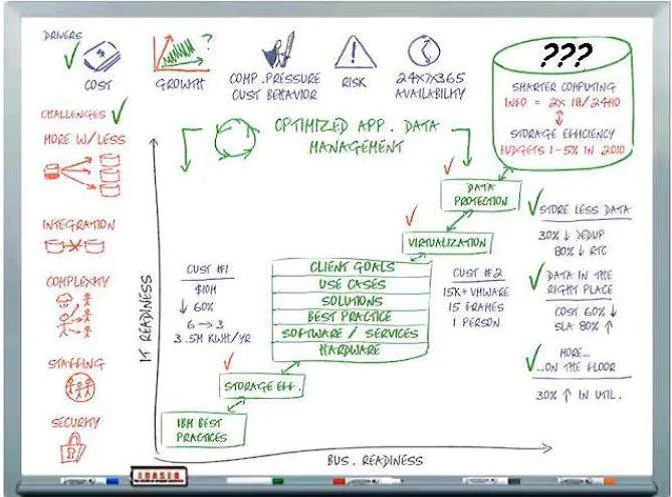 DRIVERS
COST
GROWTH
?
COMP. PRESSURE
CUST BEHAVIOR
RISK
24X7X365
AVAILABILITY
???
SMARTER COMPUTING
INFO = 2X 18/24MO
STORAGE EFFICIENCY
BUDGETS 1-5% IN 2010
CHALLENGES
MORE W/LESS
INTEGRATION
COMPLEXITY
STAFFING
SECURITY
OPTIMIZED APP. DATA
MANAGEMENT
IT READINESS
DATA
PROTECTION
VIRTUALIZATION
CLIENT GOALS
USE CASES
SOLUTIONS
BEST PRACTICE
SOFTWARE / SERVICES
HARDWARE
STORAGE EFF.
IBM BEST
PRACTICES
CUST #1
$10M
↓ 60%
6 → 3
3.5M KWH/YR
CUST #2
15K+ VMWARE
15 FRAMES
1 PERSON
STORE LESS DATA
30% ↓ DEDUP
80% ↓ RTC
DATA IN THE
RIGHT PLACE
COST 60% ↓
SLA 80% ↑
MORE...
...ON THE FLOOR
30% ↑ IN UTIL.
BUS. READINESS
ERASER